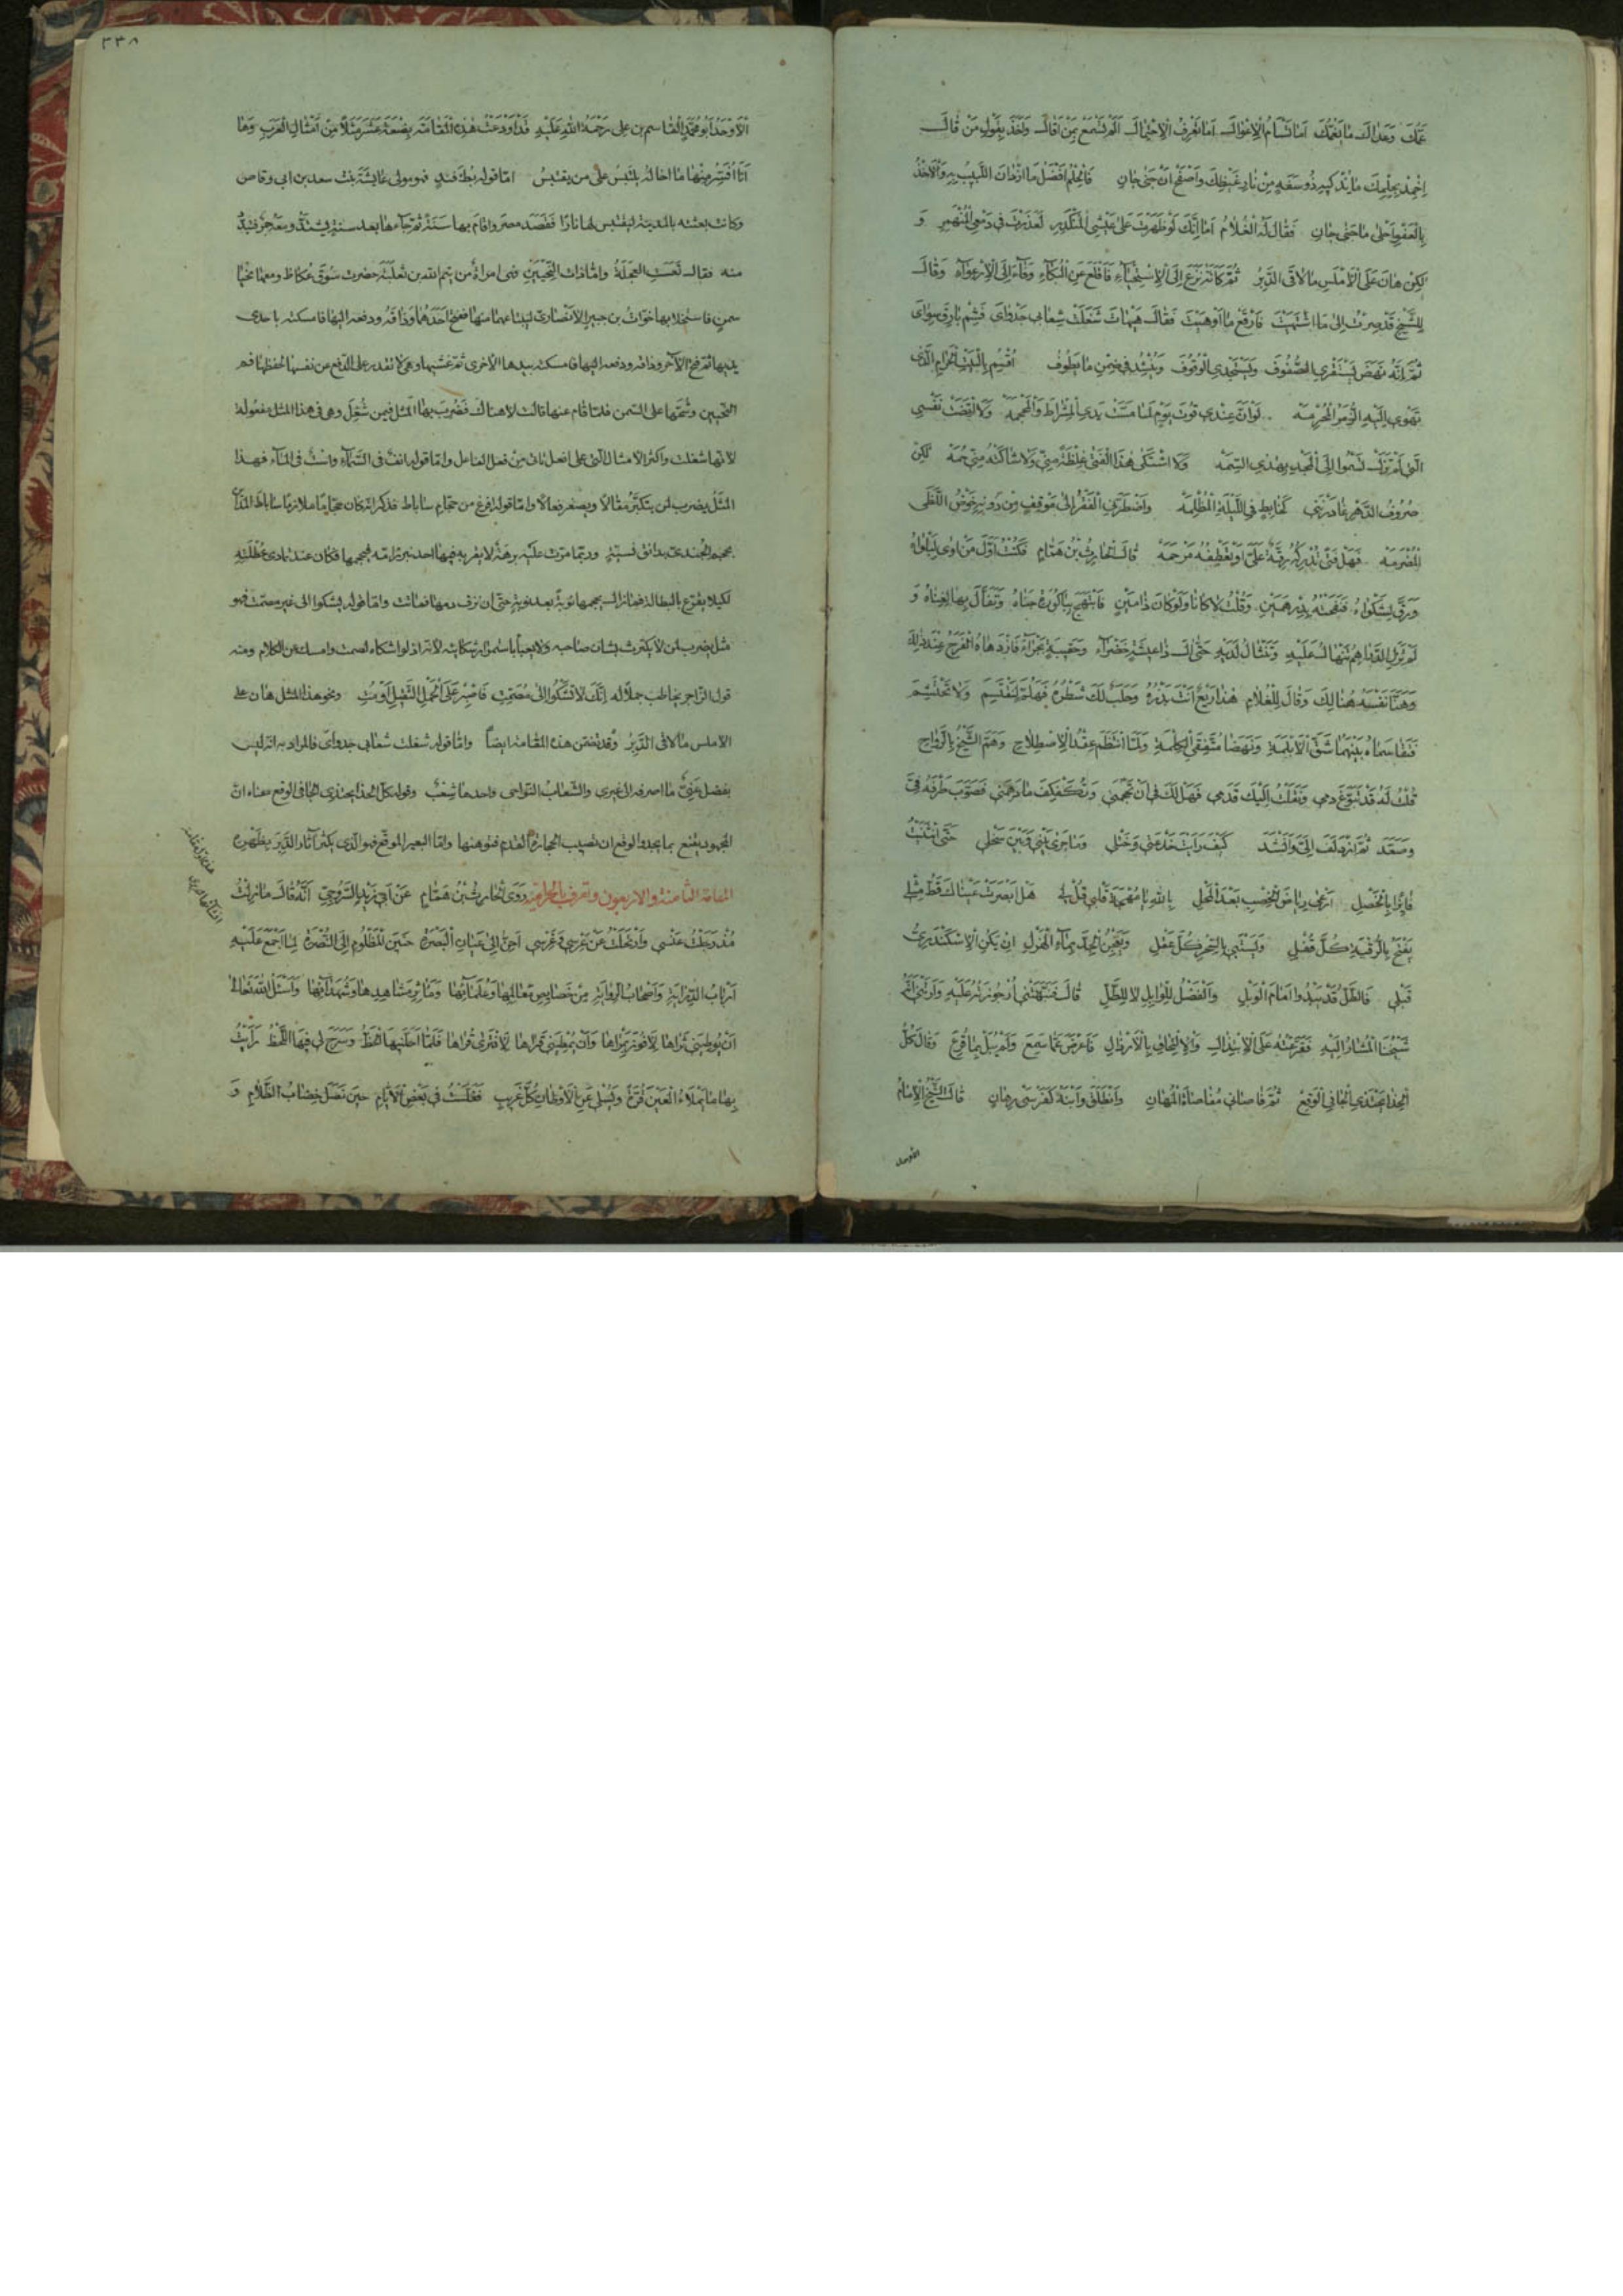 عَمُّكَ وَعَدَاكَ مَا يَغُمُّكَ اَمَا تَسْاَمُ الْاِعْوَالَ اَمَا تَعْرِفُ الْاِحْتِمَالَ اَلَمْ تَسْمَعْ بِمَنْ اَقَالَ وَاَخَذَ بِقَوْلِ مَنْ قَالَ
اَخْمِدْ بِحِلْمِكَ مَا يُذْكِيهِ ذُو سَفَهٍ مِنْ نَارِ غَيْظِكَ وَاصْفَحْ اِنْ جَنَى جَانِ فَالْحِلْمُ اَفْضَلُ مَا ازْدَانَ اللَّبِيبُ بِهِ وَالْاَخْذُ
بِالْعَفْوِ اَحْلَى مَا جَنَى جَانِ فَقَالَ لَهُ الْغُلَامُ اَمَا اِنَّكَ لَوْ ظَهَرْتَ عَلَى عَيْشِى الْمُنْكَدِرِ لَعَذَرْتَ فِى دَمْعِى الْمُنْهَمِرِ وَ
لٰكِنْ هَانَ عَلَى الْاَمْلَسِ مَا لَاقَى الدَّبِرُ ثُمَّ كَاَنَّهُ نَزَعَ اِلَى الْاِسْتِحْيَاءِ فَاَقْلَعَ عَنِ الْبُكَاءِ وَفَاءَ اِلَى الْاِرْعِوَاءِ وَقَالَ
لِلشَّيْخِ قَدْ صِرْتُ اِلَى مَا اشْتَهَيْتَ فَارْقَعْ مَا اَوْهَيْتَ فَقَالَ هَيْهَاتَ شَغَلَتْ شِعَابِى جَدْوَاىَ فَشِمْ بَارِقَ سِوَاىَ
ثُمَّ اِنَّهُ نَهَضَ يَسْتَقْرِى الصُّفُوفَ وَيَسْتَجْدِى الْوُقُوفَ وَيُنْشِدُ فِى ضِمْنِ مَا يَطُوفُ اُقْسِمُ بِالْبَيْتِ الْحَرَامِ الَّذِى
تَهْوِى اِلَيْهِ الزُّمَرُ الْمُحْرِمَه لَوْ اَنَّ عِنْدِى قُوتَ يَوْمٍ لَمَا مَسَّتْ يَدِى الْمِشْرَاطَ وَالْمِحْجَمَه وَلَا ارْتَضَتْ نَفْسِى
الَّتِى لَمْ تَزَلْ تَسْمُوا اِلَى الْمَجْدِ بِهٰذِى السِّمَه وَلَا اشْتَكَى هٰذَا الْفَتَى غِلْظَةً مِنِّى وَلَا شَاكَتْهُ مِنِّى حُمَه لٰكِنْ
صُرُوفُ الدَّهْرِ غَادَرْنَنِى كَخَابِطٍ فِى اللَّيْلَةِ الْمُظْلِمَه وَاضْطَرَّنِى الْفَقْرُ اِلَى مَوْقِفٍ مِنْ دُونِهِ خَوْضُ اللَّظَى
الْمُضْرَمَه فَهَلْ فَتًى تُدْرِكُهُ رِقَّةٌ عَلَىَّ اَوْ تَعْطِفُهُ مَرْحَمَه قَالَ الْحَارِثُ بْنُ هَمَّامٍ فَكُنْتُ اَوَّلَ مَنْ اَوَى لِبَلْوَاهُ
وَرَقَّ لِشَكْوَاهُ فَنَفَحْتُهُ بِدِرْهَمَيْنِ وَقُلْتُ لَا كَانَا وَلَوْ كَانَ ذَا مَيْنٍ فَابْتَهَجَ بِبَاكُورَةِ جَنَاهُ وَتَفَاَّلَ بِهَا لِغِنَاهُ وَ
لَمْ تَزَلِ الدَّرَاهِمُ تَنْهَالُ عَلَيْهِ وَتَنْثَالُ لَدَيْهِ حَتَّى اٰلَ ذَا عِيشَةٍ خَضْرَاءَ وَحَقِيبَةٍ بَجْرَاءَ فَازْدَهَاهُ الْفَرَحُ عِنْدَ ذٰلِكَ
وَهَنَّا نَفْسَهُ هُنَالِكَ وَقَالَ لِلْغُلَامِ هٰذَا رَيْعٌ اَنْتَ بَذْرُهُ وَحَلَبٌ لَكَ شَطْرُهُ فَهَلُمَّ لِنَقْتَسِمَ وَلَا تَحْتَشِمْ
فَتَقَاسَمَاهُ بَيْنَهُمَا شَقَّ الْاُبْلُمَةِ وَنَهَضَا مُتَّفِقَىِ الْكَلِمَةِ وَلَمَّا انْتَظَمَ عِقْدُ الْاِصْطِلَاحِ وَهَمَّ الشَّيْخُ بِالرَّوَاحِ
قُلْتُ لَهُ قَدْ تَبَوَّغَ دَمِى وَنَقَلْتُ اِلَيْكَ قَدَمِى فَهَلْ لَكَ فِى اَنْ تَحْجُمَنِى وَتُكَفْكِفَ مَا دَهِمَنِى فَصَوَّبَ طَرْفَهُ فِىَّ
وَصَعَّدَ ثُمَّ ازْدَلَفَ اِلَىَّ وَاَنْشَدَ كَيْفَ رَاَيْتَ خُدْعَتِى وَخَتْلِى وَمَا جَرَى بَيْنِى وَبَيْنَ سَخْلِى حَتَّى انْثَنَيْتُ
فَائِزًا بِالْخَصْلِ اَرْعَى رِيَاضَ الْخِصْبِ بَعْدَ الْمَحْلِ بِاللّٰهِ يَا مُهْجَةَ قَلْبِى قُلْ لِى هَلْ اَبْصَرَتْ عَيْنَاكَ قَطُّ مِثْلِى
يَفْتَحُ بِالرُّقْيَةِ كُلَّ قُفْلِ وَيَسْتَبِى بِالسِّحْرِ كُلَّ عَقْلِ وَيَعْجِنُ الْجِدَّ بِمَاءِ الْهَزْلِ اِنْ يَكُنِ الْاِسْكَنْدَرِىُّ
قَبْلِى فَالطَّلُّ قَدْ يَبْدُوا اَمَامَ الْوَبْلِ وَالْفَضْلُ لِلْوَابِلِ لَا لِلطَّلِّ قَالَ فَنَبَّهَتْنِى اُرْجُوزَتُهُ عَلَيْهِ وَاَرَتْنِى اَنَّهُ
شَيْخُنَا الْمُشَارُ اِلَيْهِ فَقَرَّعْتُهُ عَلَى الْاِبْتِذَالِ وَالْاِلْتِحَاقِ بِالْاَرْذَالِ فَاَعْرَضَ عَمَّا سَمِعَ وَلَمْ يُبَلْ بِمَا قُرِّعَ وَقَالَ كُلَّ
الْحِذَاءِ يَحْتَذِى الْحَافِى الْوَقِعُ ثُمَّ قَاصَانِى مُقَاصَاةَ الْمُهَانِ وَانْطَلَقَ وَابْنُهُ كَفَرَسَىْ رِهَانٍ قَالَ الشَّيْخُ الْاِمَامُ
الأوحد
٣٣٨
الْاَوْحَدُ اَبُو مُحَمَّدٍ الْقَاسِمُ بن على رَحْمَةُ اللّٰهِ عَلَيْهِ قَدْ اَوْدَعْتُ هٰذِهِ الْمَقَامَةَ بِضْعَةَ عَشَرَ مَثَلًا مِنْ اَمْثَالِ الْعَرَبِ وَهَا
اَنَا اُفَسِّرُ مِنْهَا مَا اخَالُهُ يلتبسُ عَلَى من يقتبسُ امّا قوله بُطءُ فِنْدٍ فهو مولى عائِشَة بنت سعد بن ابى وقاص
وكانت بعثته بالمدينة ليقتبس لها نارًا فَقَصَدَ مصر واقام بها سَنَةً ثُمّ جآءها بعد سنة يشتدُّ ومعه جمرٌ فتبدَّدَ
منه فقال تَعِسَتِ العَجَلَةُ وامّا ذات النِّحْيَيْنِ فهى امراةٌ من تيم الله بن ثعلبَة حضرت سُوقَ عُكاظَ ومعها نِحْيَا
سمن فاستخلا بها خَوّاتُ بن جبيرٍ الانصارى ليبتاعهما منها ففتح احدَهُمَا وَذاقَهُ ودفعه اليها فامسكته باحدى
يديها ثم فتح الآخر وذاقه ودفعه اليها فامسكته بيدها الاخرى ثمّ غشيها وهى لا تقدر على الدّفع عن نفسها لحفظها فم
النّحيين وشُحّها على السّمن فلمّا قام عنها قالت لا هناكَ فَضُرِبَ بهَا المثل فيمن شُغِلَ وهى فى هذا المثل مفعولة
لانّها شغلت واكثر الامثال الّتى على افعل تاتى مِن فعل الفاعل وامّا قوله انفٌ فى السّمآءِ واستٌ فى المآء فهذا
المثَلُ يضرب لمن يتكبّرُ مقالًا ويصغر فعالًا وامّا قوله افرغ من حجّام ساباط فذكر انّه كان حجّامًا ملازمًا ساباط المدائن
يحجم الجندىّ بدانقٍ نسيئةً وربّما مرّت عليه برهةٌ لا يقربه فيها احدٌ فيحجمها فكان عند تمادى عُطْلَتِهِ
لكيلا يقرّع بالبطالة فما زال يحجمها نوبةً بعد نوبةٍ حتى ان نزف دمها فماتت وامّا قوله يشكوا الى غير مصمّت فهو
مثل يضرب لمن لا يكترث بشان صاحبه ولا يعبأ باستمرار شكايته لانّه اذا لو اشكاه لصمت وامسك عن الكلام ومنه
قول الرّاجز يخاطب جملًا له اِنَّكَ لَا تَشْكُوا اِلَى مُصَمِّتِ فَاصْبِرْ عَلَى الْحِمْلِ الثَّقِيلِ اَوْ مُتِ ونحو هذا المثل هَان على
الاملس ما لاقى الدَّبِرُ وقد تضمن هذه المقامة ايضًا وامّا قوله شغلت شعابى جدواى فالمراد به انّه ليس
يفضل عنّى ما اصرفه الى غيرى والشّعاب النّواحى واحدها شِعْبٌ وقوله كلّ الحذاء يحتذى الحافى الوقع معناه انّ
المجهود يقنع بما يجد والوقع ان تصيب الحجارة القدم فتوهنها وامّا البعير الموقّع فهو الّذى يكثر آثار الدَّبَرِ بظهره
المقامة الثامنة والاربعون وتعرف بالحرامية رَوَى الْحَارِثُ بْنُ هَمَّامٍ عَنْ اَبِى زَيْدٍ السَّرُوجِىِّ اَنَّهُ قَالَ مَا زِلْتُ
مُذْ رَحَلْتُ عَنْسِى وَارْتَحَلْتُ عَنْ عِرْسِى وَغَرْسِى اَحِنُّ اِلَى عِيَانِ الْبَصْرَةِ حَنِينَ الْمَظْلُومِ اِلَى النُّصْرَةِ لِمَا اَجْمَعَ عَلَيْهِ
اَرْبَابُ الدِّرَايَةِ وَاَصْحَابُ الرِّوَايَةِ مِنْ خَصَائِصِ مَعَالِمِهَا وَعُلَمَائِهَا وَمَاٰثِرِ مَشَاهِدِهَا وَشُهَدَائِهَا وَاَسْئَلُ اللّٰهَ تَعَالَى
اَنْ يُوطِئَنِى ثَرَاهَا لِاَفُوزَ بِمَرْاٰهَا وَاَنْ يُمْطِيَنِى قَرَاهَا لِاَقْتَرِىَ قُرَاهَا فَلَمَّا اَحَلَّنِيهَا الْحَظُّ وَسَرَحَ لِى فِيهَا اللَّحْظُ رَاَيْتُ
بِهَا مَا يَمْلَاءُ الْعَيْنَ قُرَّةً وَيُسْلِى عَنِ الْاَوْطَانِ كُلَّ غَرِيبٍ فَغَلَّسْتُ فِى بَعْضِ الْاَيَّامِ حِينَ نَصَلَ خِضَابُ الظَّلَامِ وَ